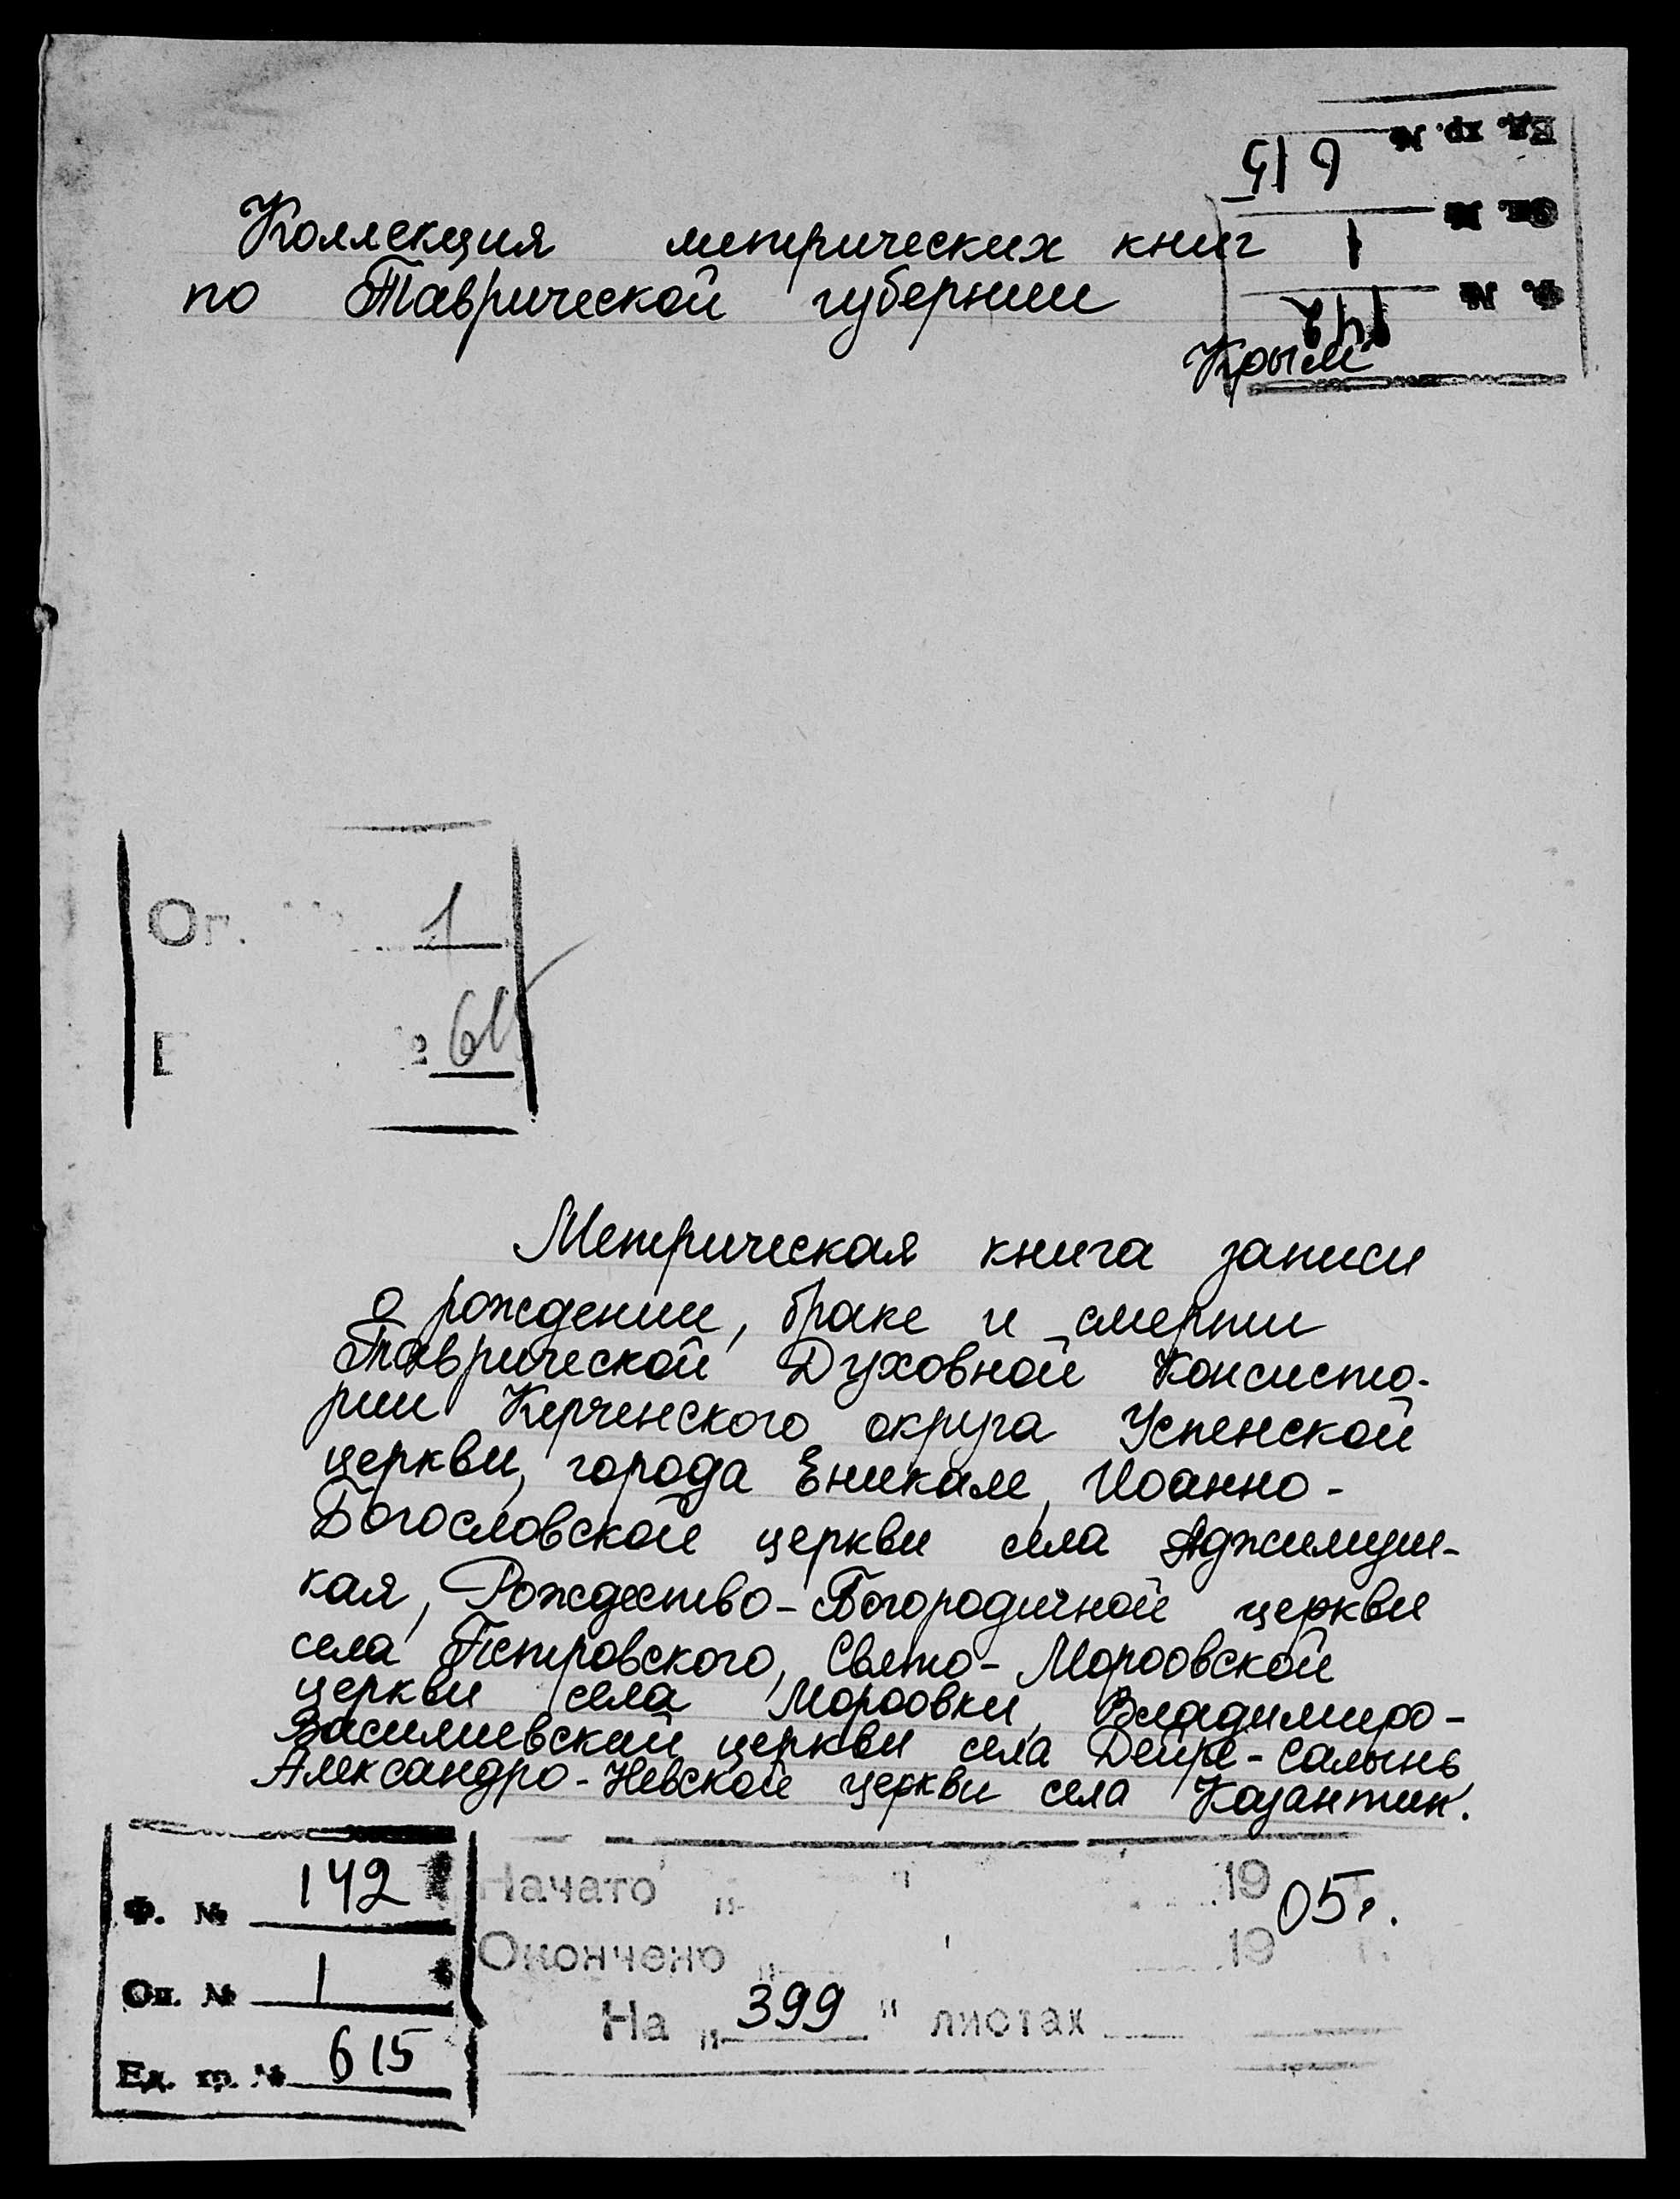 Ед. хр. № 615
Оп. № 1
Ф. № 142
Коллекция метрических книг
по Таврической губернии
Крым
Оп. 1
№ 615
Метрическая книга записи
о рождении, браке и смерти
Таврической Духовной Консисто-
рии Керченского округа Успенской
церкви, города Еникале, Иоанно-
Богословской церкви села Аджимуш-
кая, Рождество-Богородичной церкви
села Петровского, Свято-Марфовской
церкви села Марфовки, Владимиро-
Василиевский церкви села Дейре-Салынь,
Александро-Невской церкви села Казантип.
Ф. № 142
Оп. № 1
Ед. хр. № 615
Начато „ " 1905 г.
Окончено „ 19 г.
На „399" листах